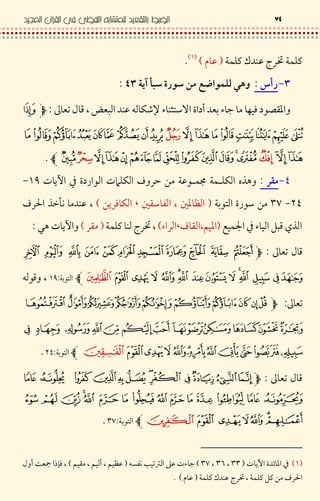 ٧٤
الضبط بالتقعيد للمتشابه اللفظي في القرآن المجيد
كلمة تخرج عندك كلمة ( عام )(١).
٣- رأس : وهي للمواضع من سورة سبأ آية ٤٣ :
والمقصود فيها ما جاء بعد أداة الاستثناء لإشكاله عند البعض ، قال تعالى : ﴿ وَإِذَا
تُتْلَىٰ عَلَيْهِمْ ءَايَٰتُنَا بَيِّنَٰتٍ قَالُوا۟ مَا هَٰذَآ إِلَّا رَجُلٌ يُرِيدُ أَن يَصُدَّكُمْ عَمَّا كَانَ يَعْبُدُ ءَابَآؤُكُمْ وَقَالُوا۟ مَا
هَٰذَآ إِلَّآ إِفْكٌ مُّفْتَرًى ۚ وَقَالَ ٱلَّذِينَ كَفَرُوا۟ لِلْحَقِّ لَمَّا جَآءَهُمْ إِنْ هَٰذَآ إِلَّا سِحْرٌ مُّبِينٌ ﴾ .
٤- مقر : وهذه الكلمة مجموعة من حروف الكلمات الواردة في الآيات ١٩-
٢٤- ٣٧ من سورة التوبة ( الظالمين ، الفاسقين ، الكافرين ) ، عندما نأخذ الحرف
الذي قبل الياء في الجميع (الميم،القاف،الراء)، تخرج لنا كلمة ( مقر ) والآيات هي :
قال تعالى : ﴿ أَجَعَلْتُمْ سِقَايَةَ ٱلْحَآجِّ وَعِمَارَةَ ٱلْمَسْجِدِ ٱلْحَرَامِ كَمَنْ ءَامَنَ بِٱللَّهِ وَٱلْيَوْمِ ٱلْءَاخِرِ
وَجَٰهَدَ فِى سَبِيلِ ٱللَّهِ ۚ لَا يَسْتَوُۥنَ عِندَ ٱللَّهِ ۗ وَٱللَّهُ لَا يَهْدِى ٱلْقَوْمَ ٱلظَّٰلِمِينَ ﴾ التوبة:١٩ ، وقوله
تعالى: ﴿ قُلْ إِن كَانَ ءَابَآؤُكُمْ وَأَبْنَآؤُكُمْ وَإِخْوَٰنُكُمْ وَأَزْوَٰجُكُمْ وَعَشِيرَتُكُمْ وَأَمْوَٰلٌ ٱقْتَرَفْتُمُوهَا
وَتِجَٰرَةٌ تَخْشَوْنَ كَسَادَهَا وَمَسَٰكِنُ تَرْضَوْنَهَآ أَحَبَّ إِلَيْكُم مِّنَ ٱللَّهِ وَرَسُولِهِۦ وَجِهَادٍ فِى
سَبِيلِهِۦ فَتَرَبَّصُوا۟ حَتَّىٰ يَأْتِىَ ٱللَّهُ بِأَمْرِهِۦ ۗ وَٱللَّهُ لَا يَهْدِى ٱلْقَوْمَ ٱلْفَٰسِقِينَ ﴾ التوبة:٢٤.
قال تعالى : ﴿ إِنَّمَا ٱلنَّسِىٓءُ زِيَادَةٌ فِى ٱلْكُفْرِ ۖ يُضَلُّ بِهِ ٱلَّذِينَ كَفَرُوا۟ يُحِلُّونَهُۥ عَامًا
وَيُحَرِّمُونَهُۥ عَامًا لِّيُوَاطِـُٔوا۟ عِدَّةَ مَا حَرَّمَ ٱللَّهُ فَيُحِلُّوا۟ مَا حَرَّمَ ٱللَّهُ ۚ زُيِّنَ لَهُمْ سُوٓءُ
أَعْمَٰلِهِمْ ۗ وَٱللَّهُ لَا يَهْدِى ٱلْقَوْمَ ٱلْكَٰفِرِينَ ﴾ التوبة:٣٧ .
(١) في المائدة الآيات ( ٣٣ ، ٣٦ ، ٣٧ ) جاءت على الترتيب نفسه ( عظيم ، أليم ، مقيم ) ، فإذا جمعت أول
الحرف من كل كلمة ، تخرج عندك كلمة ( عام ) .